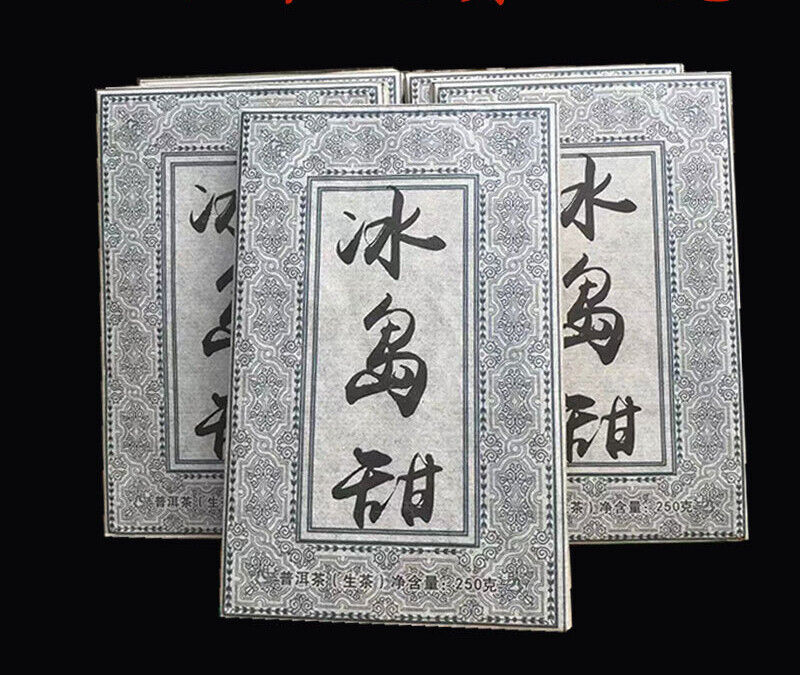 冰島甜
普洱茶（生茶）净含量：250克
冰島甜
普洱茶（生茶
冰島甜
茶）净含量：250克